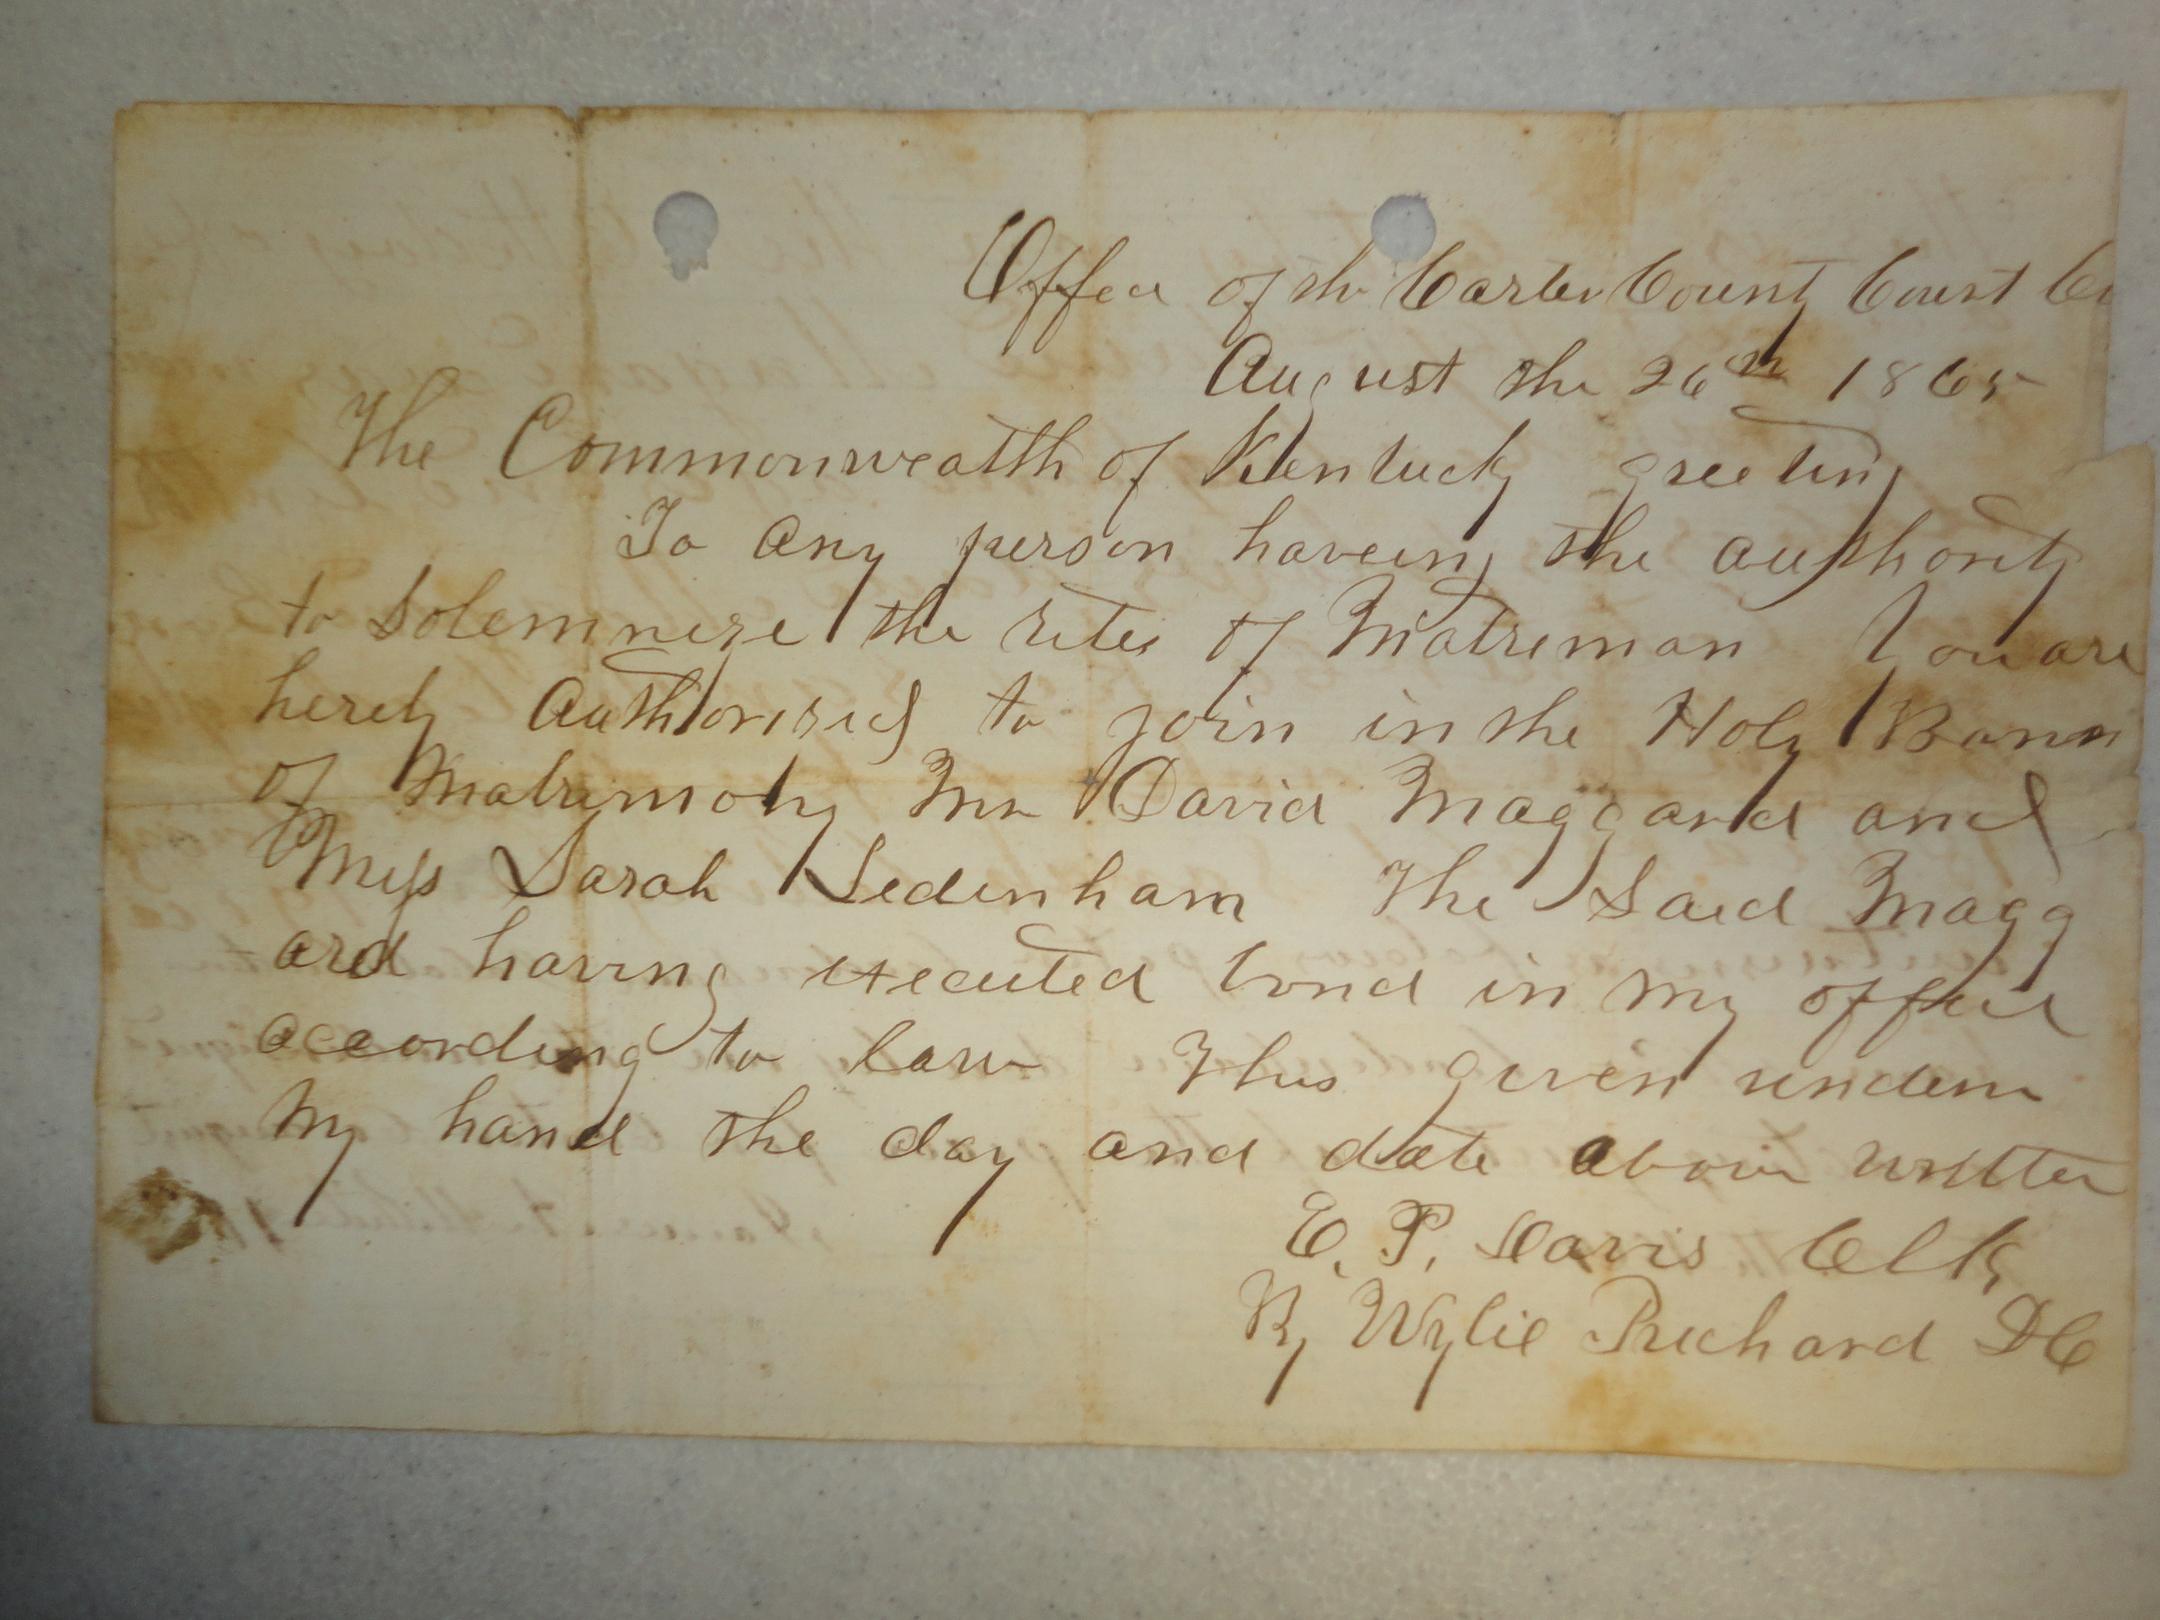 Office of the Carter County Court Cl
August the 26th 1865
The Commonwealth of Kentucky greeting
To any person haveing the authority
to Solemnize the rites of Matriman You are
herely Authorised to join in the Holy Bann
of Matrimony Mr David Maggard and
Miss Sarah Sedenham The Said Magg
ard having executed bond in my office
according to law Thus given undem
my hand the day and date above written
E. P. Davis Clk
By Wylie Prichard DC